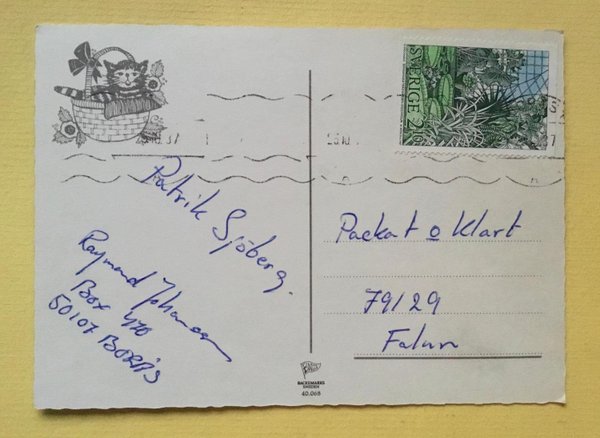 SVERIGE 2
10.87
25.10
87
Patrik Sjöberg.
Raymond Johansson
Box 470
50107 BORÅS
Packat o Klart
79129
Falun
BACKSMARKS
SWEDEN
40.068